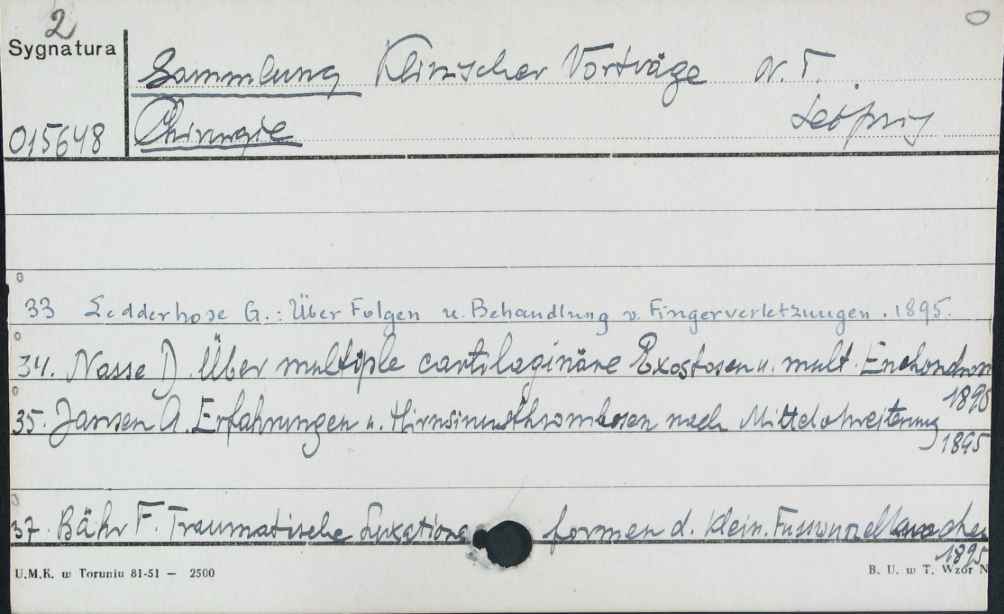 2
Sygnatura
Sammlung Klinischer Vorträge N. F.
015648 Chirurgie Leipzig
33 Ledderhose G.: Über Folgen u. Behandlung v. Fingerverletzungen. 1895.
34. Nasse D. Über multiple cartilaginäre Exostosen u. mult. Enchondrom
1895
35. Jansen A. Erfahrungen ü. Hirnsinusthrombosen nach Mittelohreiterung
1895
37. Bähr F. Traumatische Luxations formen d. klein. Fusswurzelknochen
1895
U.M.K. w Toruniu 81-51 — 2500
B. U. w T. Wzór N